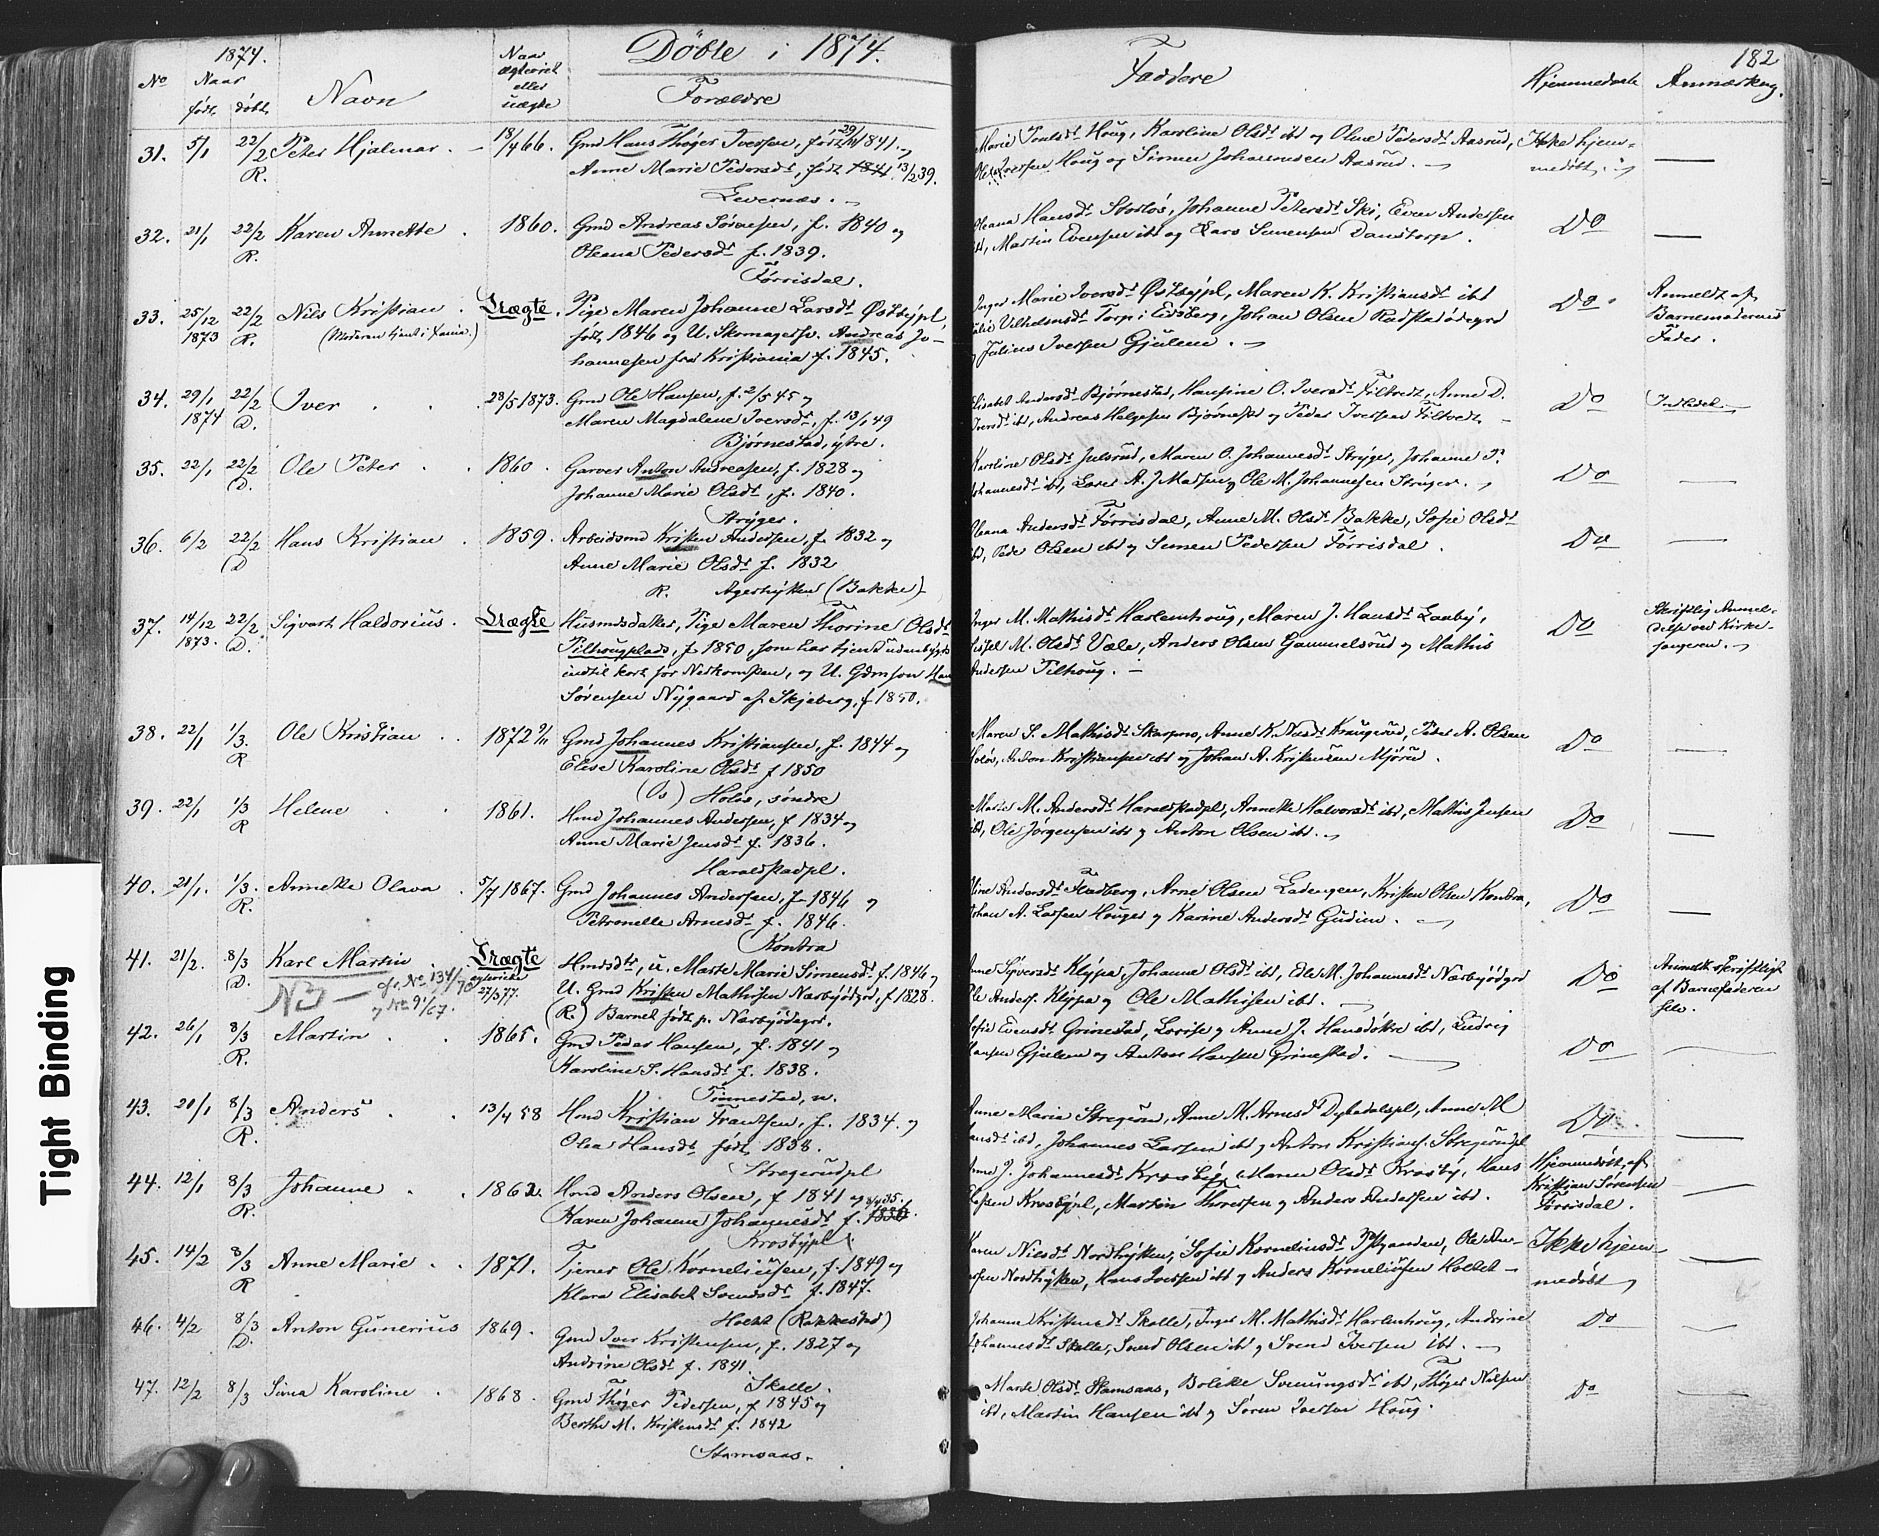 Døbte i 1874.
182
No
1874.
Naar
født, døbt,
Navn
Naar
ægteviet
eller
uægte
Forældre
Faddere
Hjemmedøbt
Anmærkng.
31. 5/1 22/2 R. Peter Hjalmar. 18/4 66. Gmd Hans Thøger Iversen, født 29/11 1841. og
Anne Marie Pedersdt, født 1841. 13/2 39.
Levernæs.
Houg, Karoline Olsdt ibt og Oline Pedersdt Aasrud,
Iversen Houg og Simen Johannesen Aasrud.
Ikke hjem-
medøbt.
32. 21/1 22/2 R. Karen Annette. 1860. Gmd Andreas Sørensen, f. 1840 og
Oleana Pedersdt f. 1839.
Førrisdal.
Oleana Hansdt Storløs, Johanne Petersdt Ski, Even Andersen
ibt, Martin Evensen ibt og Lars Simensen Danstorp.
Do
33. 25/12 1873 22/2 R. Nils Kristian.
(Moderen tjent i Xania.)
Uægte. Pige Maren Johanne Larsdt Østbypl,
født 1846 og U. Skomagersv. Andreas Jo-
hannesen fra Kristiania f. 1845.
Inger Marie Iversdt Østbypl, Maren K. Kristiansdt ibt
Vilhelmsdt Torp i Eidsberg, Johan Olsen Rudstadødegrd
og Julius Iversen Gjulem.
Do
Anmeldt af
Barnemoderens
Fader.
34. 29/1 1874 22/2 D. Iver 28/5 1873. Gmd Ole Hansen, f. 2/5 45 og
Maren Magdalene Iversdt, f. 13/1 49
Bjørnestad, ytre.
Elisabet Andersdt Bjørnestad, Hansine O. Iversdt Filtvedt, Anne D.
Iversdt ibt, Andreas Helgesen Bjørnest og Peder Iversen Filtvedt.
Do
35. 22/1 22/2 D. Ole Peter 1860. Garver Anton Andreasen, f. 1828 og
Johanne Marie Olsdt, f. 1840.
Stryger.
Karoline Olsdt Julsrud, Maren O. Johannesdt Stryger, Johanne P.
Johannesdt ibt, Lares A. J. Madsen og Ole M. Johannesen Stryger.
Do
36. 6/2 22/2 D Hans Kristian. 1859. Arbeidsmd Kristen Andersen, f. 1832 og
Anne Marie Olsdt f. 1832
R. Agerhytten (Bakke)
Oleana Andersdt Førrisdal, Anne M. Olsdt Bakke, Sofie Olsdt
ibt, Peder Olsen ibt og Simen Pedersen Førrisdal.
Do
37. 14/12 1873. 22/2 D. Sigvart Haldorius. Uægte Husmdsdatter, Pige Maren Thorine Olsdt
Tilhougplads, f. 1850, som har tjent udenbygds
indtil kort før Nedkomsten, og U. Gdmsøn Hans
Sørensen Nygaard af Skjeberg, f 1850.
Inger M. Mathisdt Harlemhoug, Maren J. Hansdt Laaby,
M. Olsdt Væle, Anders Olsen Gammelsrud og Mathis
Andersen Tilhoug.
Do
Skriftlig Anmel-
delse ved Kirke-
sangeren.
38. 22/1 1/3. R Ole Kristian 1872 9/11 Gmd Johannes Kristiansen, f. 1844 og
Elise Karoline Olsdt f 1850
(Os) Holøs, søndre
Maren S. Mathisdt Skarpnes, Anne K. Nilsdt Kraugerud, Peder A. Olsen
Holøs, Anton Kristiansen ibt og Johan A. Kristensen Mjørud.
Do
39. 22/1 1/3 R Helene 1861. Hmd Johannes Andersen, f 1834 og
Anne Marie Jensdt f. 1836.
Haraldstadpl.
Marie M. Andersdt Haraldstadpl, Annette Halvorsdt ibt, Mathis Jensen
ibt, Ole Jørgensen ibt og Anton Olsen ibt.
Do
40. 21/1. 1/3. R. Annette Olava. 5/7 1867. Gmd Johannes Andersen, f 1846 og
Petronelle Arnesdt f. 1846.
Kontra
Andersdt Fladberg, Arne Olsen Ladengen, Kristen Olsen Kontra,
Johan A. Larsen Houger og Karine Andersdt Gudim.
Do
41. 21/2. 8/3 D. Karl Martin
NB — cfr. No 134/70
og No 91/67.
Uægte
ægteviet
27/3 77.
Hmdsdtr, u. Marte Marie Simensdt f. 1846 og
U. Gmd Kristen Mathisen Nærbyødgrd, f 1828.
(R.) Barnet født p. Nærbyødegrd.
Anne Syversdt Klypa, Johanne Olsdt ibt, Edle M. Johannesdt Nærbyødgrd
Ole Anders. Klypa og Ole Mathisen ibt.
Do
Anmeldt skriftligt
af Barnefaderen
selv.
42. 26/1 8/3 R. Martin 1865. Gmd Peder Hansen, f. 1841 og
Karoline S. Hansdt f. 1838.
Tinnestad, n.
Sofie Evensdt Grinestad, Lovise og Anne J. Hansdøttre ibt, Ludvig
Hansen Gjellem og Anton Hansen Grinestad.
Do
43. 20/1 8/3 R. Anders 13/4 58 Hmd Kristian Frantsen, f. 1834. og
Olea Hansdt født 1838.
Stregerudpl
Anne Maria Stregerud, Anne M. Arnesdt Dyledalspl, Anne M
Hansdt ibt, Johannes Larsen ibt og Anton Kristians. Stregerudpl
Do
44. 12/1 8/3 R. Johanne 1862. Hmd Anders Olsen, f 1841 og
Karen Johanne Johannesdt f. 1836. 35.
Krosbypl
Anne J. Johannesdt Krosbyp, Maren Olsdt Krosby, Hans
Krosbypl, Martin Thoresen og Anders Andersen ibt.
Hjemmedøbt af
Kristian Sørensen
Førrisdal.
45. 14/2 8/3 R Anne Marie 1871. Tjener Ole Korneliusen, f. 1849 og
Klara Elisabet Svendsdt f. 1847.
Holtet (Rakkestad)
Karen Nilsdt Nordhytten, Sofie Korneliusdt , Ole An-
dersen Nordhytten, Hans Iversen ibt og Anders Korneliusen Holtet
Ikke hjem-
medøbt
46. 4/2 8/3 D. Anton Gunerius 1869. Gmd Iver Kristensen, f. 1827 og
Andrine Olsdt f. 1841.
Skolle.
Johanne Kristensdt Skolle, Inger M. Mathisdt Harlemhoug, Andrine
Johannesdt Skolle, Svend Olsen ibt og Svend Iversen ibt.
Do
47. 12/2 8/3 Sina Karoline 1868. Gmd Thøger Pedersen, f 1845 og
Berthe M. Kristensdt f. 1842
Stamsaas.
Marte Olsdt Stamsaas, Bolette Svenungsdt ibt, Thøger Nilsen
ibt, Martin Hansen ibt og Søren Iversen Houg.
Do
Tight Binding